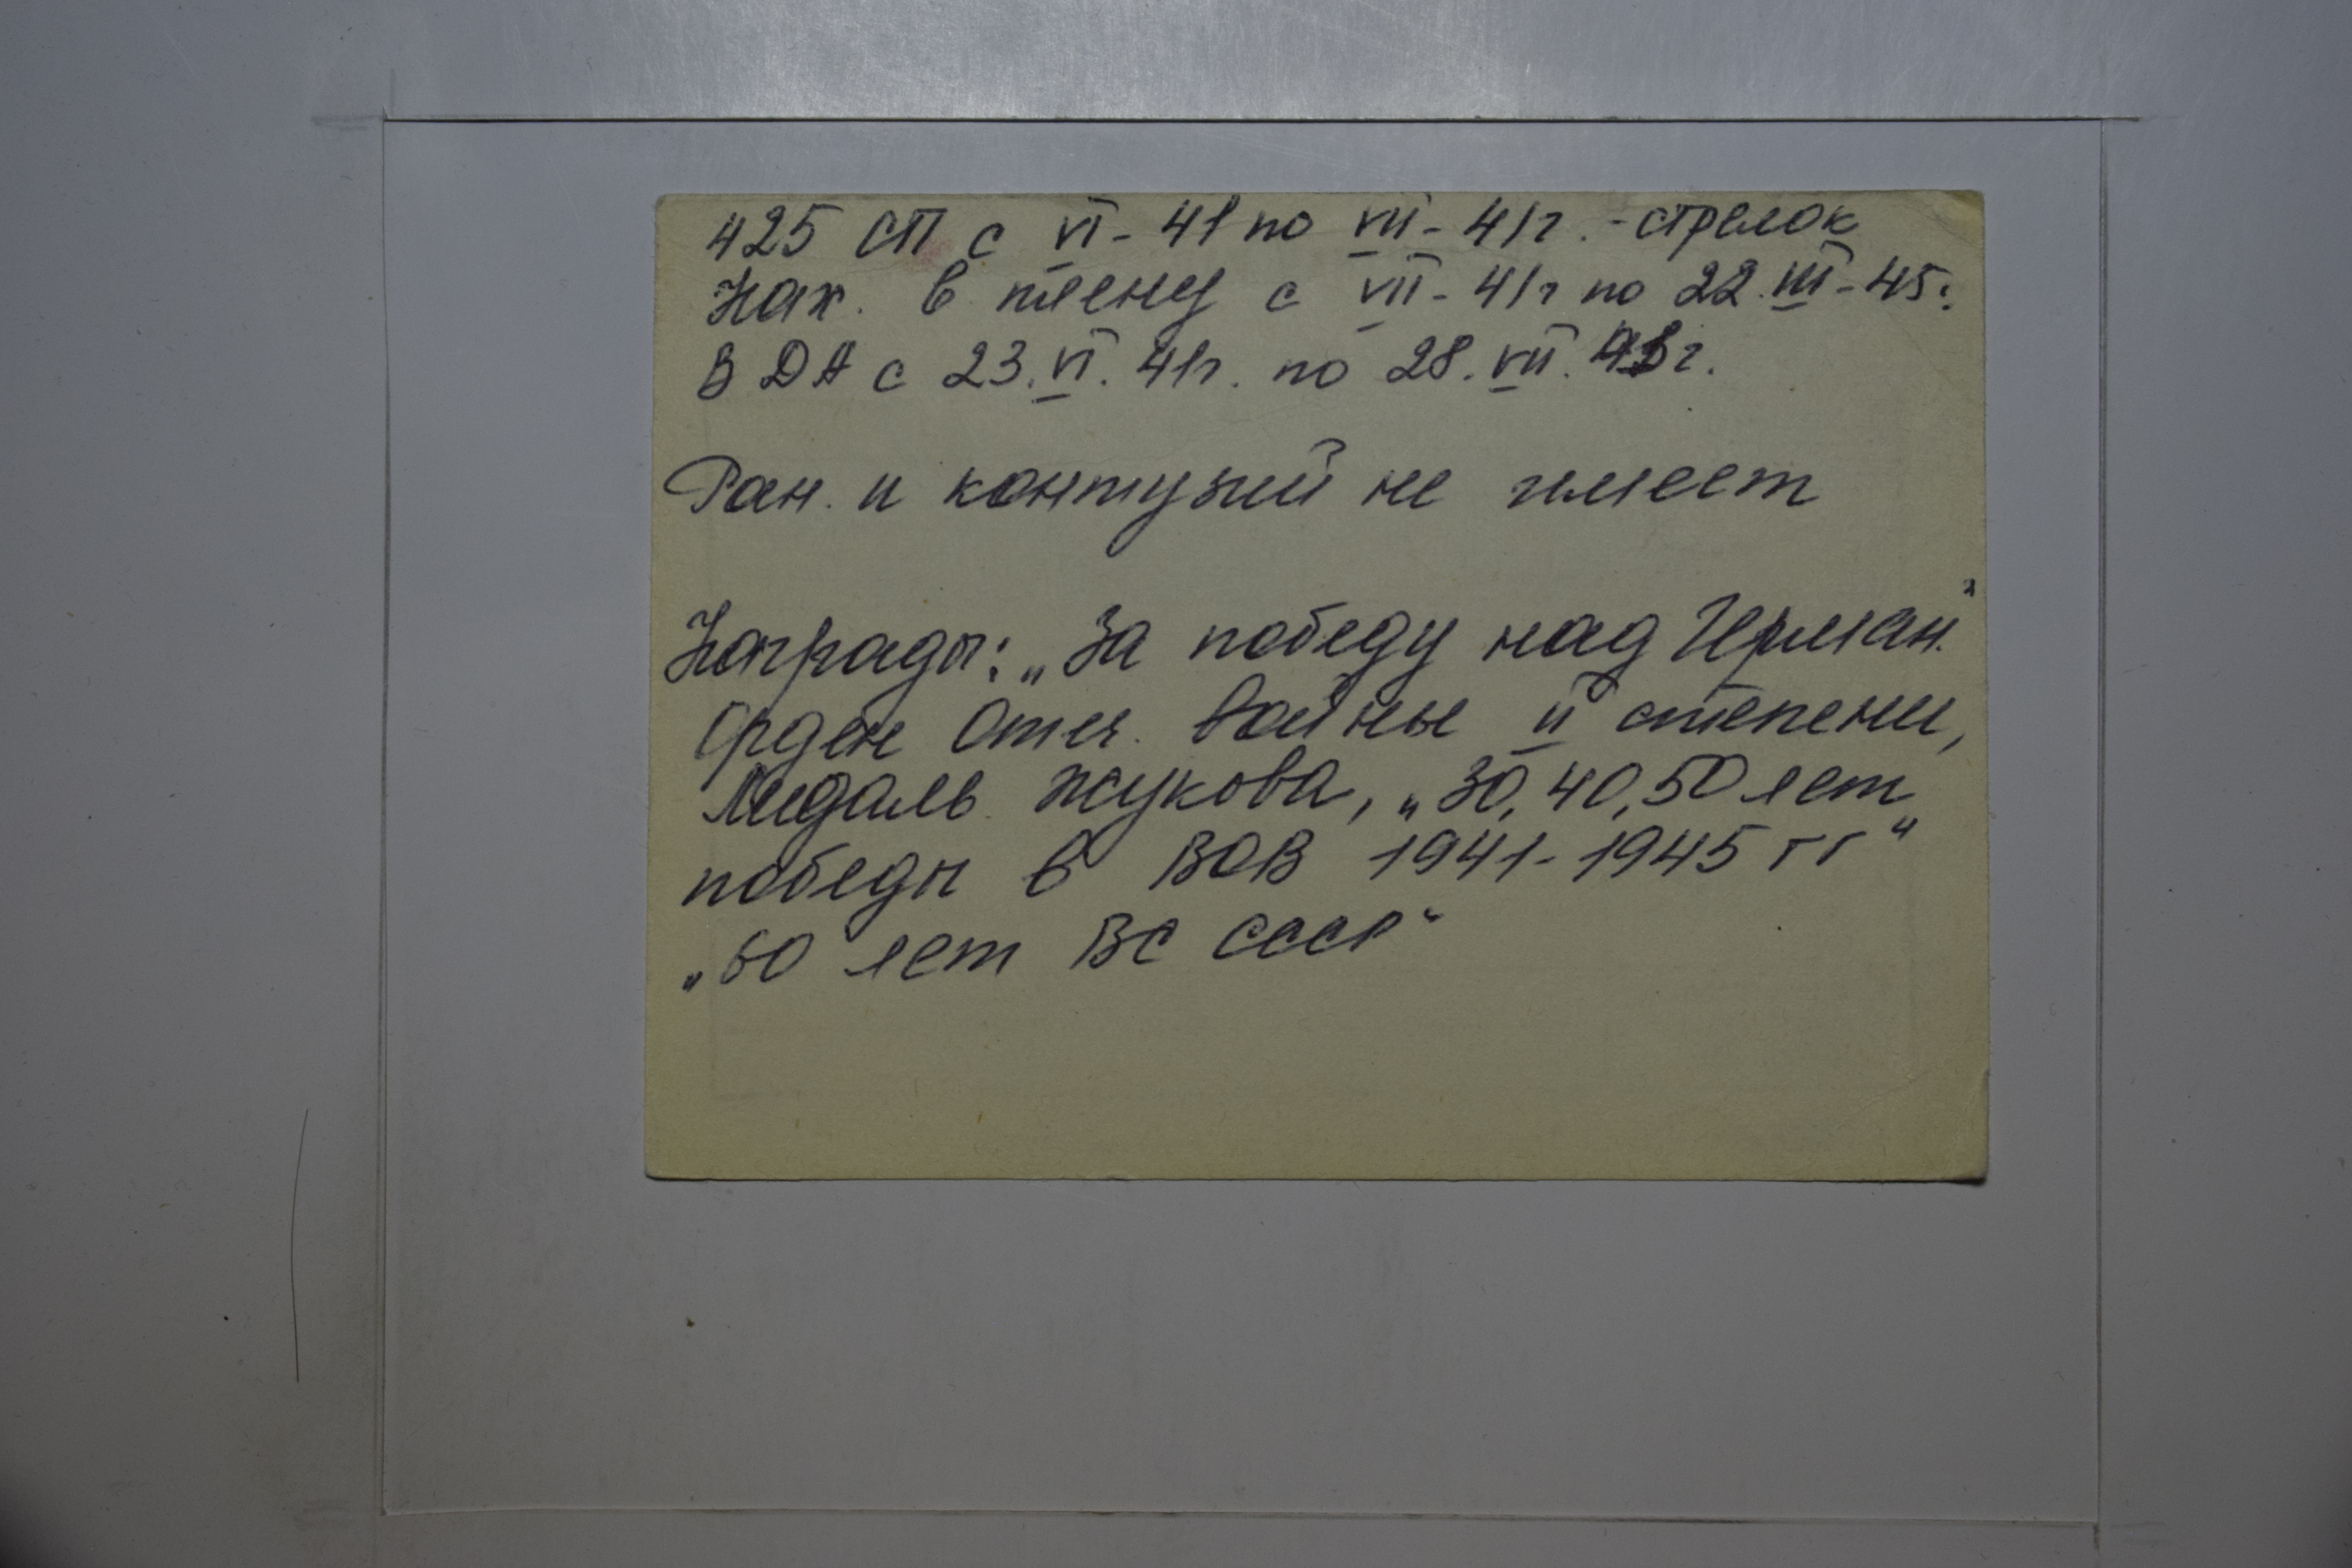 425 СП с VI - 41 по VII - 41г. - стрелок
Нах. в плену с VII - 41г по 22.III - 45г
В ДА с 23.VI.41г. по 28.VII.41г.
Ран. и контузий не имеет
Награды: „За победу над Герман."
Орден Отеч. войны II степени,
Медаль Жукова, „30, 40, 50 лет
победы в ВОВ 1941-1945 гг"
„60 лет ВС СССР"